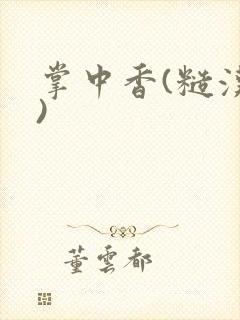 掌中香(糙汉
)
董雲都